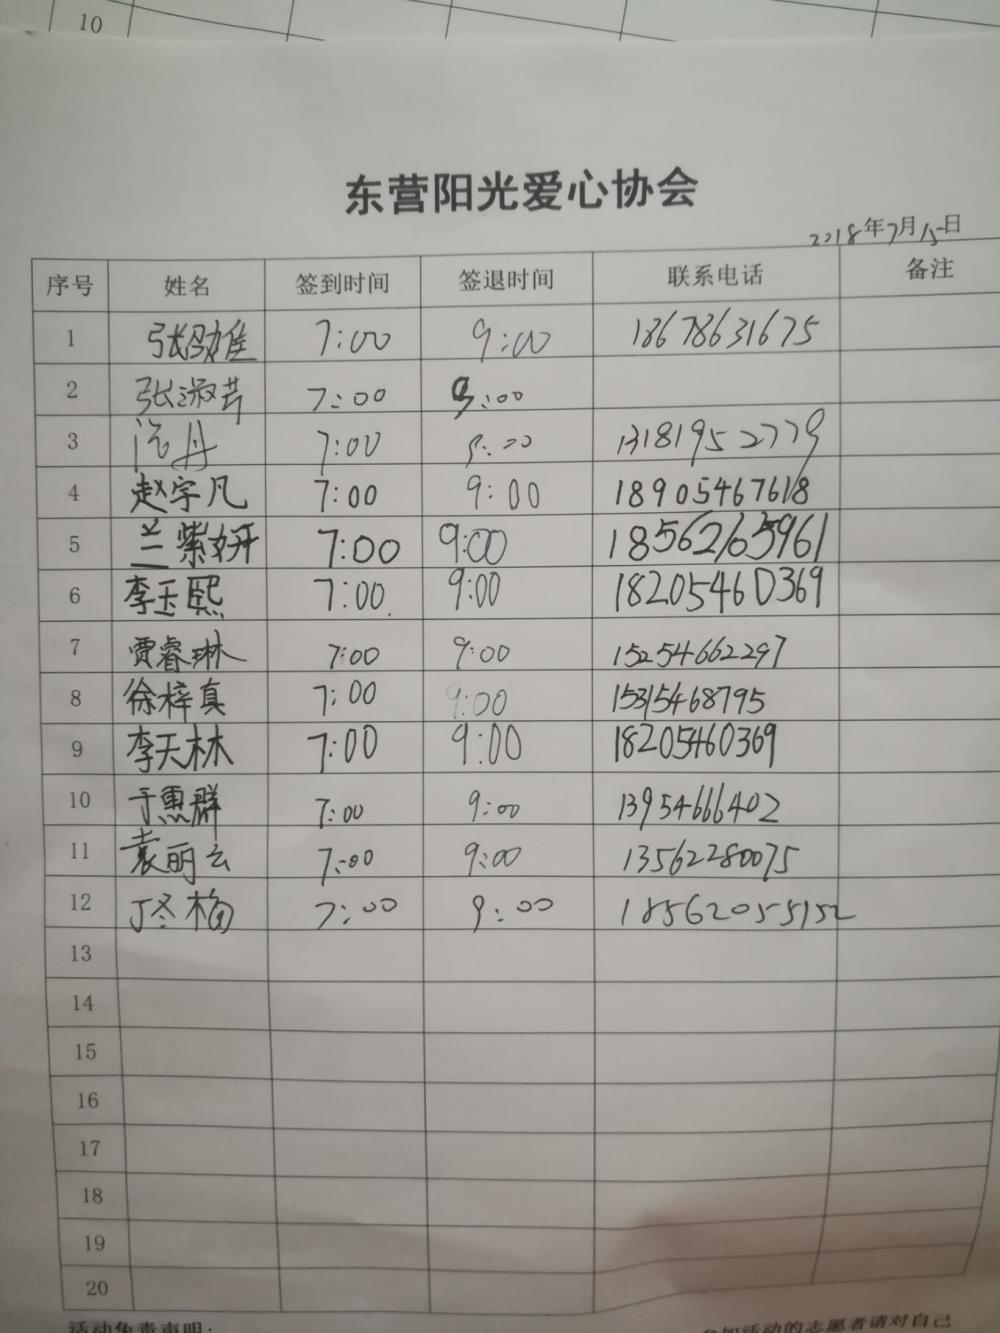 10
东营阳光爱心协会
2018年7月15日
序号 姓名 签到时间 签退时间 联系电话 备注
1 张劭维 7:00 9:00 18678631675
2 张淑芹 7:00 9:00
3 丹 7:00 9:00 13181952779
4 赵宇凡 7:00 9:00 18905467618
5 兰紫妍 7:00 9:00 18562165961
6 李玉熙 7:00 9:00 18205460369
7 贾睿琳 7:00 9:00 15254662297
8 徐梓真 7:00 9:00 15315468795
9 李天林 7:00 9:00 18205460369
10 于惠群 7:00 9:00 13954666402
11 袁丽云 7:00 9:00 13562280075
12 丁冬梅 7:00 9:00 18562055152
13
14
15
16
17
18
19
20
活动免责声明: 参加活动的志愿者请对自己